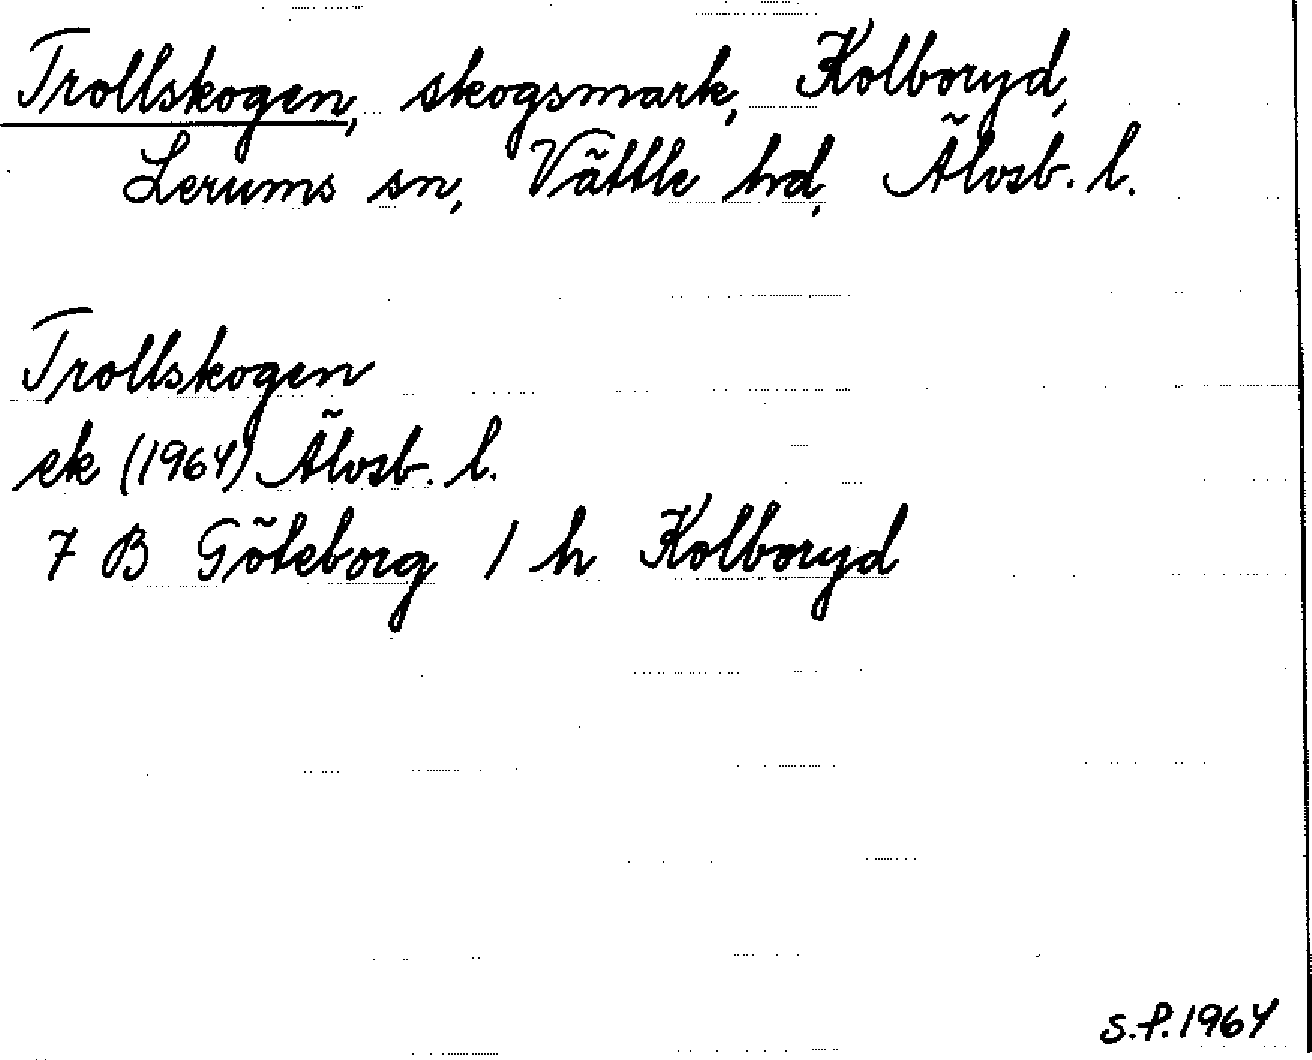 Trollskogen, skogsmark, Kolboryd,
Lerums sn, Vättle hd, Älvsb. l.
Trollskogen
ek (1964) Älvsb. l.
7 B Göteborg 1 h Kolboryd
s.f. 1964